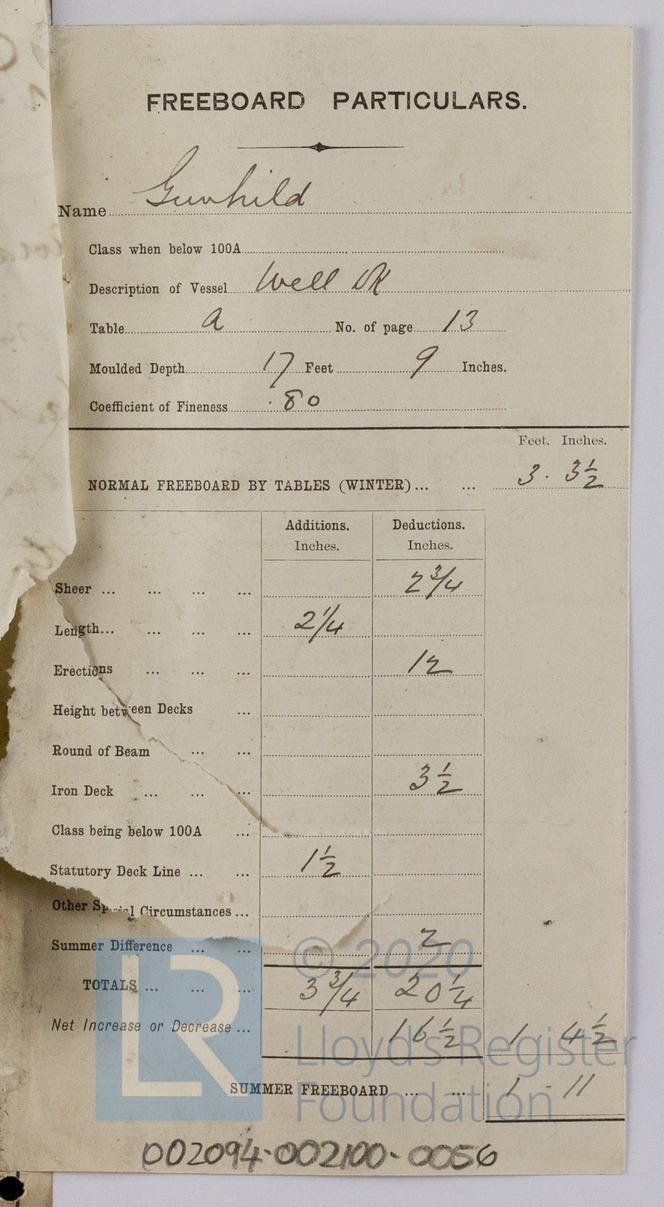 FREEBOARD PARTICULARS.
Name Gunhild
Class when below 100A
Description of Vessel Well Dk
Table a No. of page 13
Moulded Depth 17 Feet 9 Inches.
Coefficient of Fineness .80
Feet. Inches.
NORMAL FREEBOARD BY TABLES (WINTER)... ... 3. 3½
Additions. Deductions.
Inches. Inches.
Sheer ... ... ... ... 2¾
Length... ... ... ... 2¼
Erections ... ... ... 12
Height between Decks ...
Round of Beam ... ...
Iron Deck ... ... ... 3½
Class being below 100A ...
Statutory Deck Line ... ... 1½
Other Special Circumstances ...
Summer Difference ... ... 2
TOTALS ... ... ... 3¾ 20¼
Net Increase or Decrease ... 16½ 1. 4½
SUMMER FREEBOARD ... ... 1. 11
© 2020
Lloyd's Register
Foundation
LR
002094-002100-0056